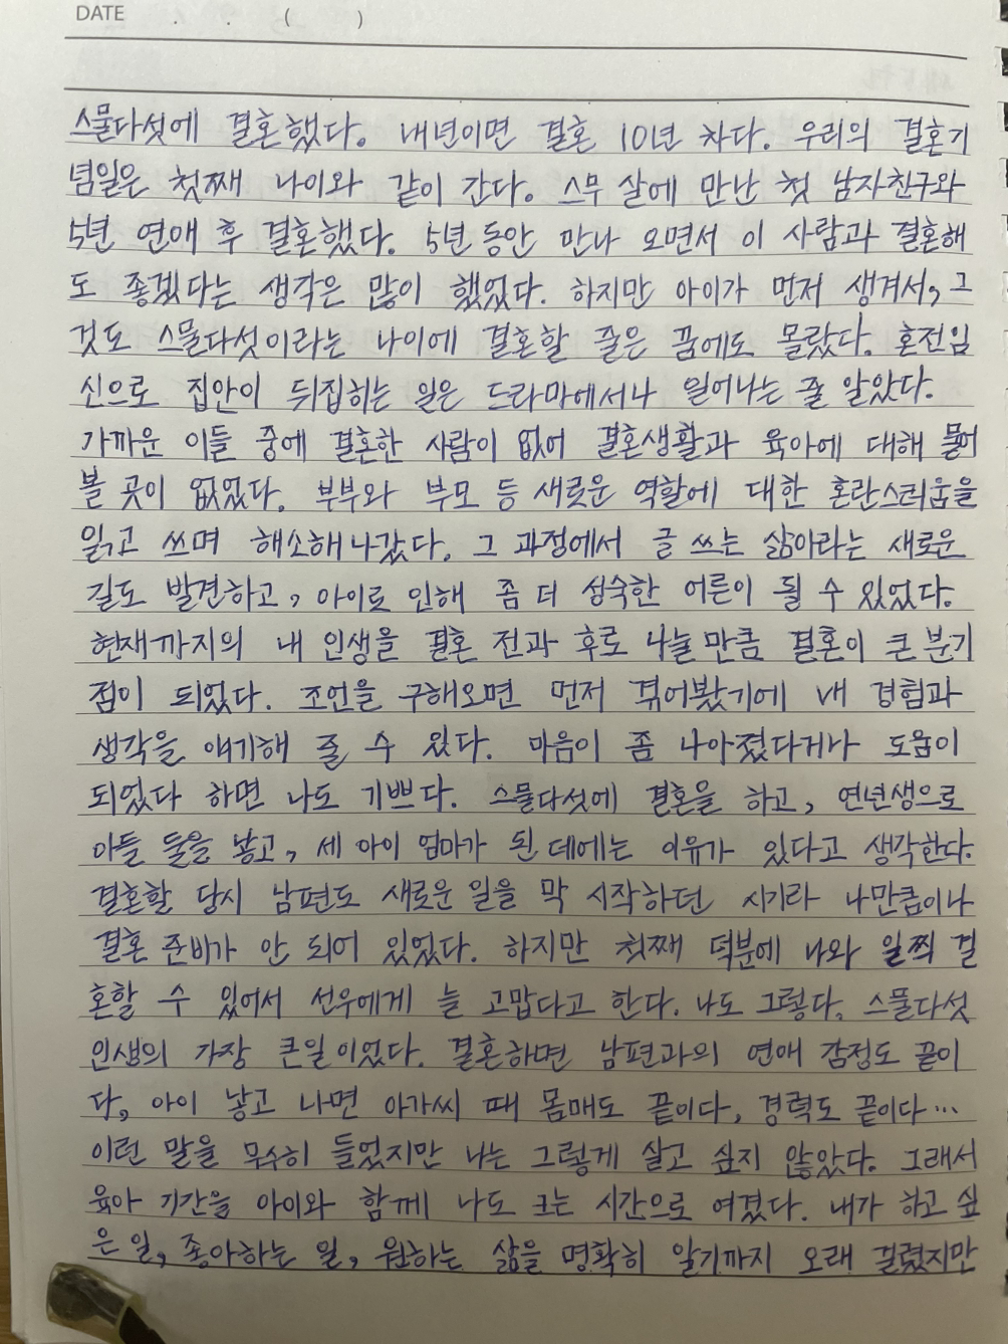 DATE . . ( )
스물다섯에 결혼했다. 내년이면 결혼 10년 차다. 우리의 결혼기
념일은 첫째 나이와 같이 간다. 스무 살에 만난 첫 남자친구와
5년 연애 후 결혼했다. 5년 동안 만나 오면서 이 사람과 결혼해
도 좋겠다는 생각은 많이 했었다. 하지만 아이가 먼저 생겨서, 그
것도 스물다섯이라는 나이에 결혼할 줄은 꿈에도 몰랐다. 혼전임
신으로 집안이 뒤집히는 일은 드라마에서나 일어나는 줄 알았다.
가까운 이들 중에 결혼한 사람이 없어 결혼생활과 육아에 대해 물어
볼 곳이 없었다. 부부와 부모 등 새로운 역할에 대한 혼란스러움을
읽고 쓰며 해소해나갔다. 그 과정에서 글 쓰는 삶이라는 새로운
길도 발견하고, 아이로 인해 좀 더 성숙한 어른이 될 수 있었다.
현재까지의 내 인생을 결혼 전과 후로 나눌만큼 결혼이 큰 분기
점이 되었다. 조언을 구해오면 먼저 겪어봤기에 내 경험과
생각을 얘기해 줄 수 있다. 마음이 좀 나아졌다거나 도움이
되었다 하면 나도 기쁘다. 스물다섯에 결혼을 하고, 연년생으로
아들 둘을 낳고, 세 아이 엄마가 된 데에는 이유가 있다고 생각한다.
결혼할 당시 남편도 새로운 일을 막 시작하던 시기라 나만큼이나
결혼 준비가 안 되어 있었다. 하지만 첫째 덕분에 나와 일찍 결
혼할 수 있어서 선우에게 늘 고맙다고 한다. 나도 그렇다. 스물다섯
인생의 가장 큰일이었다. 결혼하면 남편과의 연애 감정도 끝이
다, 아이 낳고 나면 아가씨 때 몸매도 끝이다, 경력도 끝이다…
이런 말을 무수히 들었지만 나는 그렇게 살고 싶지 않았다. 그래서
육아 기간을 아이와 함께 나도 크는 시간으로 여겼다. 내가 하고 싶
은 일, 좋아하는 일, 원하는 삶을 명확히 알기까지 오래 걸렸지만